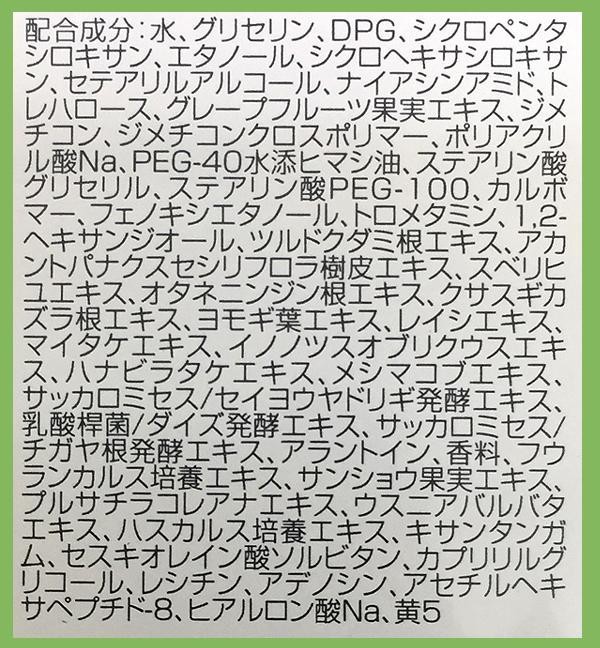 配合成分：水、グリセリン、DPG、シクロペンタ
シロキサン、エタノール、シクロヘキサシロキサ
ン、セテアリルアルコール、ナイアシンアミド、ト
レハロース、グレープフルーツ果実エキス、ジメ
チコン、ジメチコンクロスポリマー、ポリアクリ
ル酸Na、PEG-40水添ヒマシ油、ステアリン酸
グリセリル、ステアリン酸PEG-100、カルボ
マー、フェノキシエタノール、トロメタミン、1,2-
ヘキサンジオール、ツルドクダミ根エキス、アカ
ントパナクスセシリフロラ樹皮エキス、スベリヒ
ユエキス、オタネニンジン根エキス、クサスギカ
ズラ根エキス、ヨモギ葉エキス、レイシエキス、
マイタケエキス、イノノツスオブリクウスエキ
ス、ハナビラタケエキス、メシマコブエキス、
サッカロミセス/セイヨウヤドリギ発酵エキス、
乳酸桿菌/ダイズ発酵エキス、サッカロミセス/
チガヤ根発酵エキス、アラントイン、香料、フウ
ランカルス培養エキス、サンショウ果実エキス、
プルサチラコレアナエキス、ウスニアバルバタ
エキス、ハスカルス培養エキス、キサンタンガ
ム、セスキオレイン酸ソルビタン、カプリリルグ
リコール、レシチン、アデノシン、アセチルヘキ
サペプチド-8、ヒアルロン酸Na、黄5